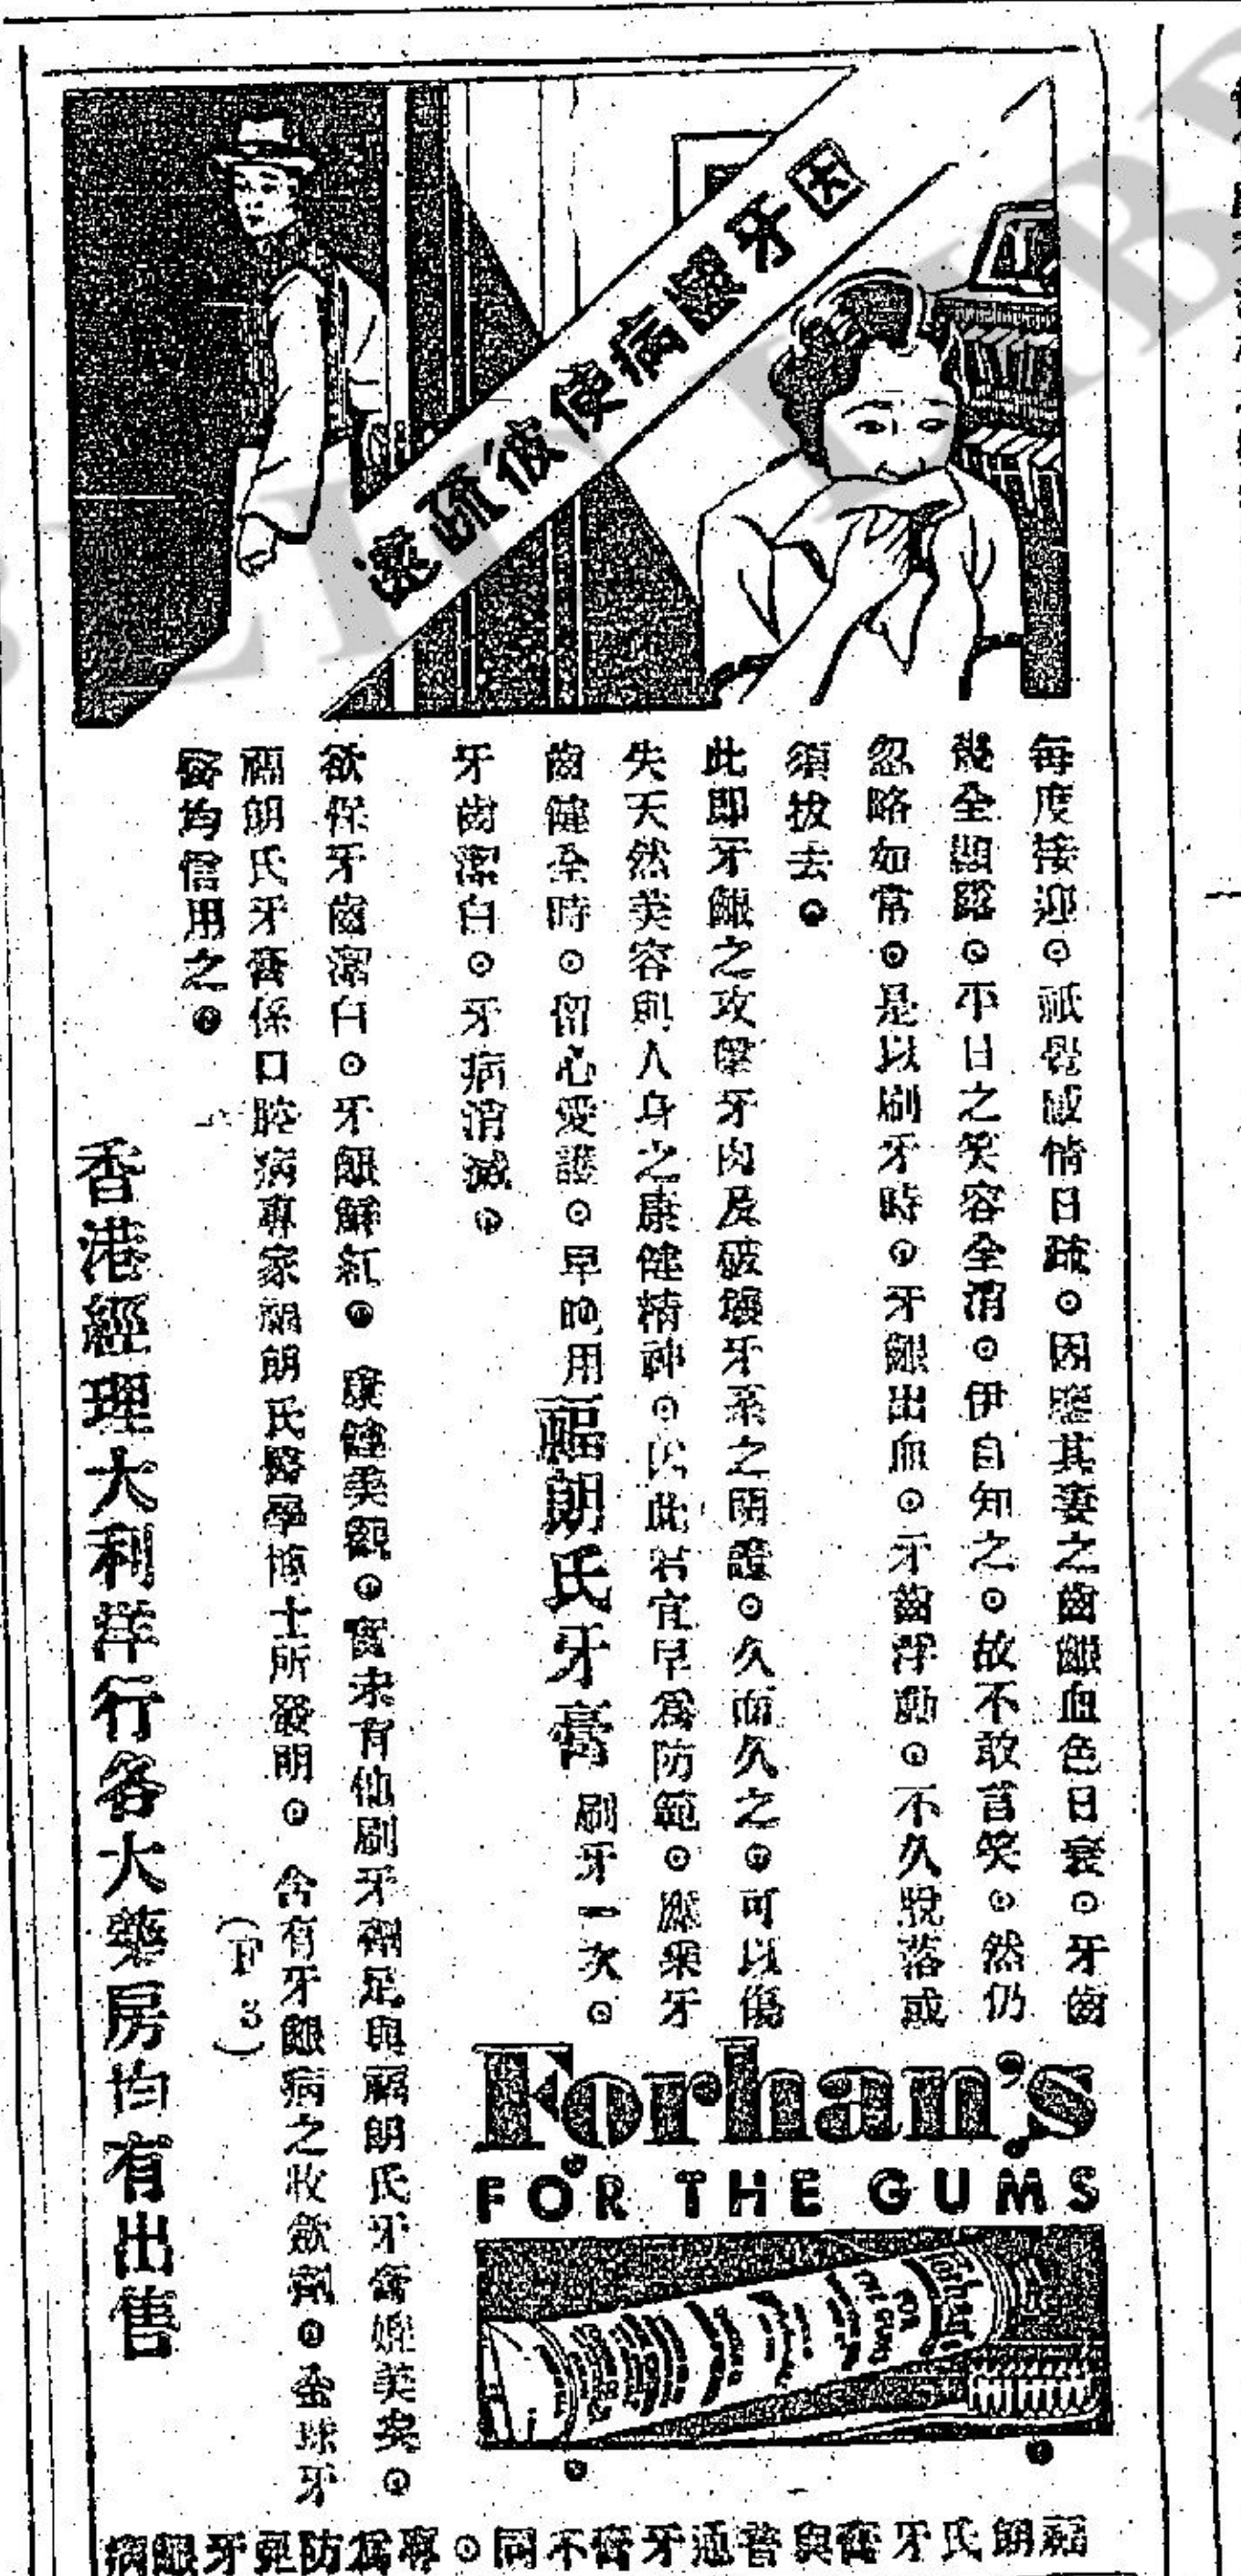 因牙齦病使彼疏遠
每度接迎。祇覺感情日疏。因鑒其妻之齒齦血色日衰。牙齒
幾全顯露。平日之笑容全消。伊自知之。故不敢言笑。然仍
忽略如常。是以刷牙時。牙齦出血。牙齒浮動。不久脫落或
須拔去。
此即牙齦之攻擊牙肉及破壞牙系之明證。久而久之。可以傷
失天然美容與人身之康健精神。因此君宜早爲防範。應乘牙
齒健全時。留心愛護。早晚用福朗氏牙膏刷牙一次。
牙齒潔白。牙病消滅。
欲保牙齒潔白。牙齦鮮紅。康健美觀。實未有他刷牙劑足與福朗氏牙膏媲美矣。
福朗氏牙膏係口腔病專家福朗氏醫學博士所發明。含有牙齦病之收歛劑。全球牙
醫均信用之。
(F 3)
香港經理大利洋行各大藥房均有出售
Forhan's
FOR THE GUMS
福朗氏牙膏與普通牙膏不同。專爲防範牙齦病